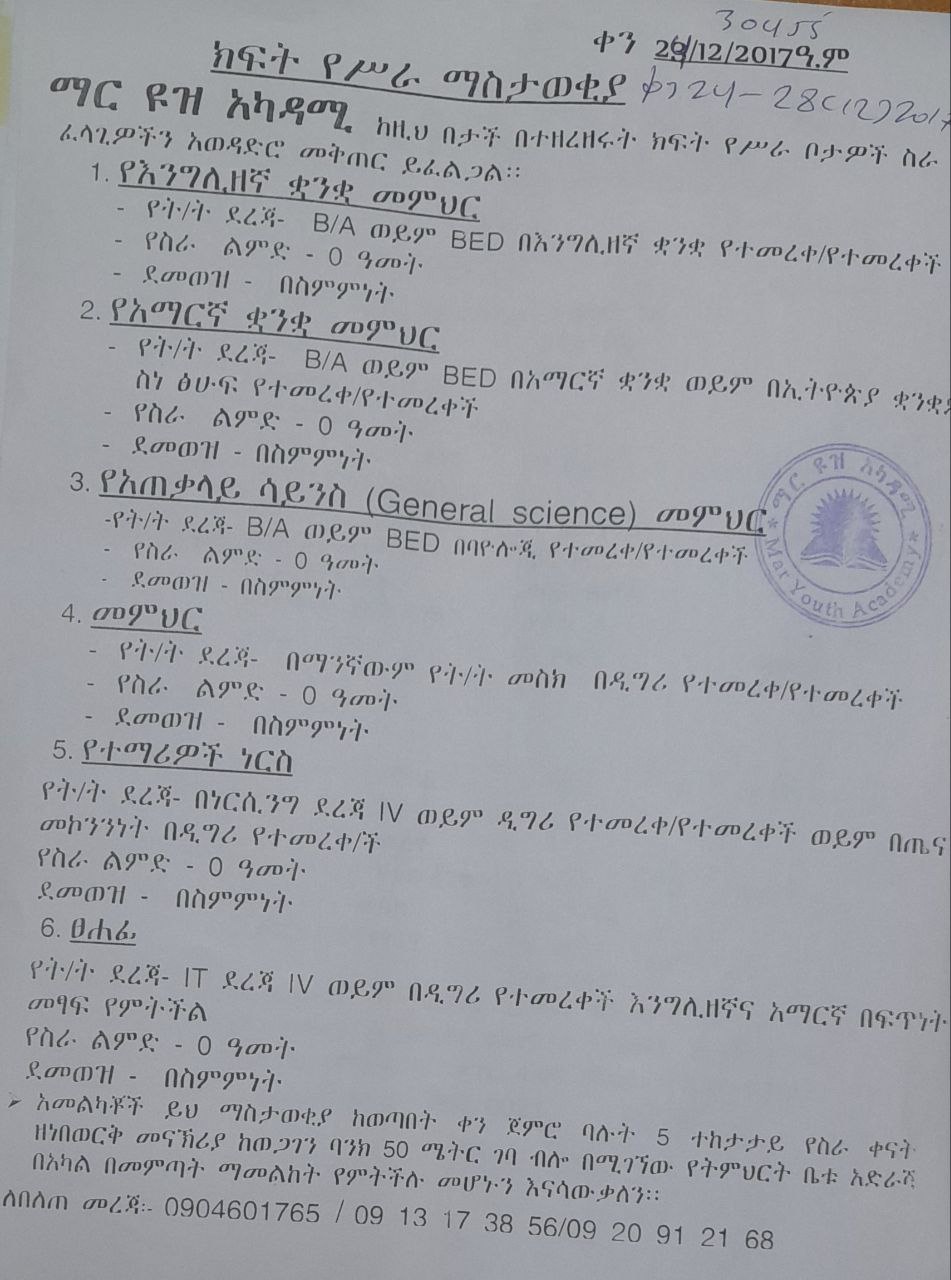 30455
ቀን 24/12/2017ዓ.ም
ክፍት የሥራ ማስታወቂያ
ቀን 24-28/12/2017
ማር ዩዝ አካዳሚ ከዚህ በታች በተዘረዘሩት ክፍት የሥራ ቦታዎች ስራ
ፈላጊዎችን አወዳድሮ መቅጠር ይፈልጋል፡፡
1. የእንግሊዘኛ ቋንቋ መምህር
- የት/ት ደረጃ- B/A ወይም BED በእንግሊዘኛ ቋንቋ የተመረቀ/የተመረቀች
- የስራ ልምድ - 0 ዓመት
- ደመወዝ - በስምምነት
2. የአማርኛ ቋንቋ መምህር
- የት/ት ደረጃ- B/A ወይም BED በአማርኛ ቋንቋ ወይም በኢትዮጵያ ቋንቋ
ስነ ፅሁፍ የተመረቀ/የተመረቀች
- የስራ ልምድ - 0 ዓመት
- ደመወዝ - በስምምነት
3. የአጠቃላይ ሳይንስ (General science) መምህር
-የት/ት ደረጃ- B/A ወይም BED በባዮሎጂ የተመረቀ/የተመረቀች
- የስራ ልምድ - 0 ዓመት
- ደመወዝ - በስምምነት
ማር ዩዝ አካዳሚ
Mar Youth Academy
4. መምህር
- የት/ት ደረጃ- በማንኛውም የት/ት መስክ በዲግሪ የተመረቀ/የተመረቀች
- የስራ ልምድ - 0 ዓመት
- ደመወዝ - በስምምነት
5. የተማሪዎች ነርስ
የት/ት ደረጃ- በነርሲንግ ደረጃ IV ወይም ዲግሪ የተመረቀ/የተመረቀች ወይም በጤና
መኮንንነት በዲግሪ የተመረቀ/ች
የስራ ልምድ - 0 ዓመት
ደመወዝ - በስምምነት
6. ፀሐፊ
የት/ት ደረጃ- IT ደረጃ IV ወይም በዲግሪ የተመረቀች እንግሊዘኛና አማርኛ በፍጥነት
መፃፍ የምትችል
የስራ ልምድ - 0 ዓመት
ደመወዝ - በስምምነት
➢ አመልካቾች ይህ ማስታወቂያ ከወጣበት ቀን ጀምሮ ባሉት 5 ተከታታይ የስራ ቀናት
ዘነበወርቅ መናኸሪያ ከወጋገን ባንክ 50 ሜትር ገባ ብሎ በሚገኘው የትምህርት ቤቱ አድራሻ
በአካል በመምጣት ማመልከት የምትችሉ መሆኑን እናሳውቃለን፡፡
ለበለጠ መረጃ፡- 0904601765 / 09 13 17 38 56/09 20 91 21 68